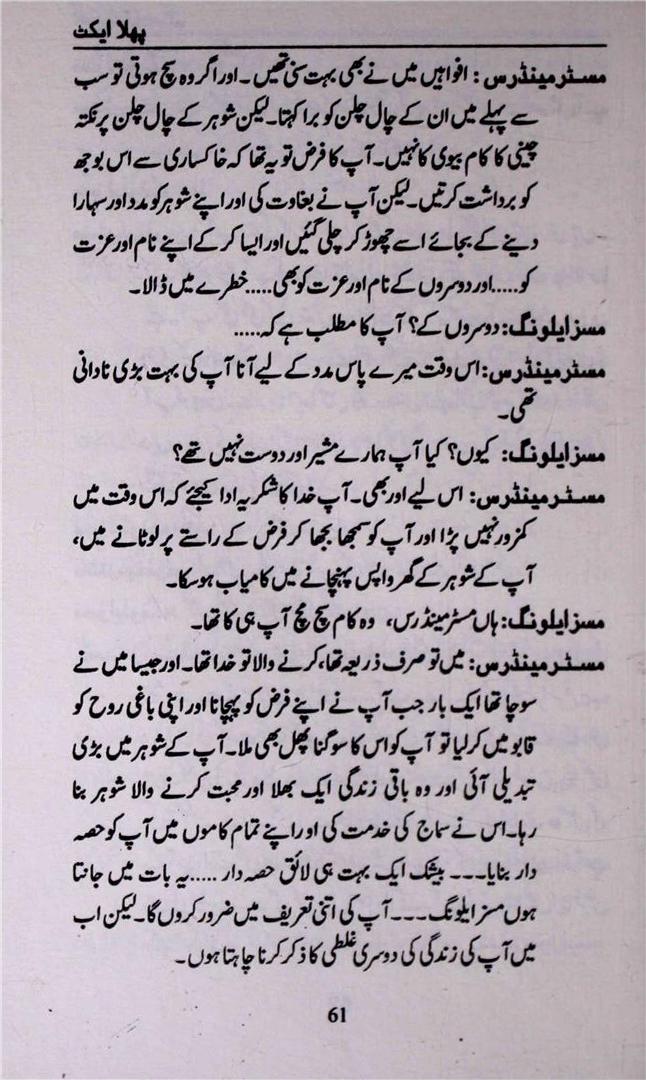 پہلا ایکٹ
مسٹر مینڈرس: افواہیں میں نے بھی بہت سنی تھیں۔ اور اگر وہ سچ ہوتی تو سب
سے پہلے میں ان کے چال چلن کو برا کہتا۔ لیکن شوہر کے چال چلن پر نکتہ
چینی کا کام بیوی کا نہیں۔ آپ کا فرض تو یہ تھا کہ خاکساری سے اس بوجھ
کو برداشت کرتیں۔ لیکن آپ نے بغاوت کی اور اپنے شوہر کو مدد اور سہارا
دینے کے بجائے اسے چھوڑ کر چلی گئیں اور ایسا کر کے اپنے نام اور عزت
کو..... اور دوسروں کے نام اور عزت کو بھی..... خطرے میں ڈالا۔
مسز ایلونگ: دوسروں کے؟ آپ کا مطلب ہے کہ.....
مسٹر مینڈرس: اس وقت میرے پاس مدد کے لیے آنا آپ کی بہت بڑی نادانی
تھی۔
مسز ایلونگ: کیوں؟ کیا آپ ہمارے مشیر اور دوست نہیں تھے؟
مسٹر مینڈرس: اس لیے اور بھی۔ آپ خدا کا شکریہ ادا کیجئے کہ اس وقت میں
کمزور نہیں پڑا اور آپ کو سمجھا بجھا کر فرض کے راستے پر لوٹانے میں،
آپ کے شوہر کے گھر واپس پہنچانے میں کامیاب ہو سکا۔
مسز ایلونگ: ہاں مسٹر مینڈرس، وہ کام سچ مچ آپ ہی کا تھا۔
مسٹر مینڈرس: میں تو صرف ذریعہ تھا، کرنے والا تو خدا تھا۔ اور جیسا میں نے
سوچا تھا ایک بار جب آپ نے اپنے فرض کو پہچانا اور اپنی باغی روح کو
قابو میں کر لیا تو آپ کو اس کا سو گنا پھل بھی ملا۔ آپ کے شوہر میں بڑی
تبدیلی آئی اور وہ باقی زندگی ایک بھلا اور محبت کرنے والا شوہر بنا
رہا۔ اس نے سماج کی خدمت کی اور اپنے تمام کاموں میں آپ کو حصہ
دار بنایا۔۔۔ بیشک ایک بہت ہی لائق حصہ دار ..... یہ بات میں جانتا
ہوں مسز ایلونگ۔۔۔ آپ کی اتنی تعریف میں ضرور کروں گا۔ لیکن اب
میں آپ کی زندگی کی دوسری غلطی کا ذکر کرنا چاہتا ہوں۔
61